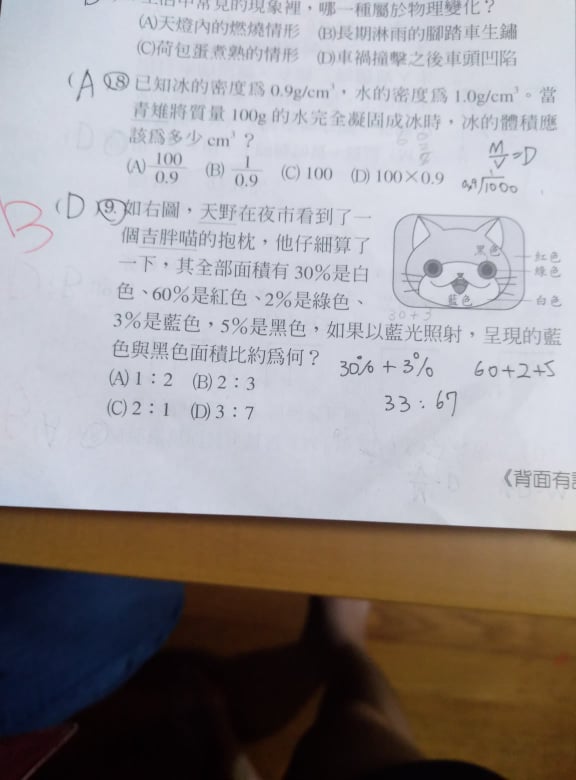 中常見的現象裡，哪一種屬於物理變化？
(A)天燈內的燃燒情形 (B)長期淋雨的腳踏車生鏽
(C)荷包蛋煮熟的情形 (D)車禍撞擊之後車頭凹陷
(A) 18. 已知冰的密度為 0.9g/cm³，水的密度為 1.0g/cm³。當
青雉將質量 100g 的水完全凝固成冰時，冰的體積應
該為多少 cm³？
(A) 100/0.9 (B) 1/0.9 (C) 100 (D) 100×0.9
M/V = D
0.9√1000
B
(D) 19. 如右圖，天野在夜市看到了一
個吉胖喵的抱枕，他仔細算了
一下，其全部面積有 30%是白
色、60%是紅色、2%是綠色、
3%是藍色，5%是黑色，如果以藍光照射，呈現的藍
色與黑色面積比約為何？
(A) 1：2 (B) 2：3
(C) 2：1 (D) 3：7
黑色
紅色
綠色
藍色
白色
30+3
30% + 3% 60+2+5
33：67
《背面有